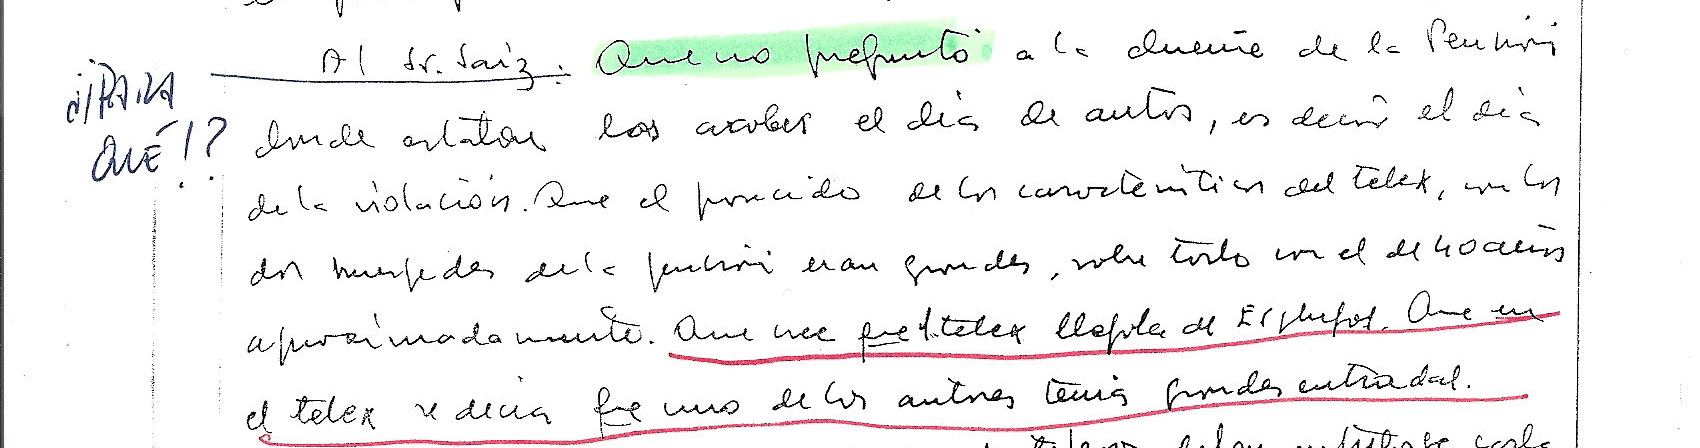 Al Sr. Saiz: Que no preguntó a la dueña de la Pensión
¡¡PARA
QUÉ!!?
donde estaban los arabes el día de autos, es decir el día
de la violación. Que el parecido de las características del telex, con los
dos huespedes de la pensión eran grandes, sobre todo con el de 40 años
aproximadamente. Que cree que el telex llegaba de Esplugas. Que en
el telex se decía que uno de los autores tenía grandes entradas.